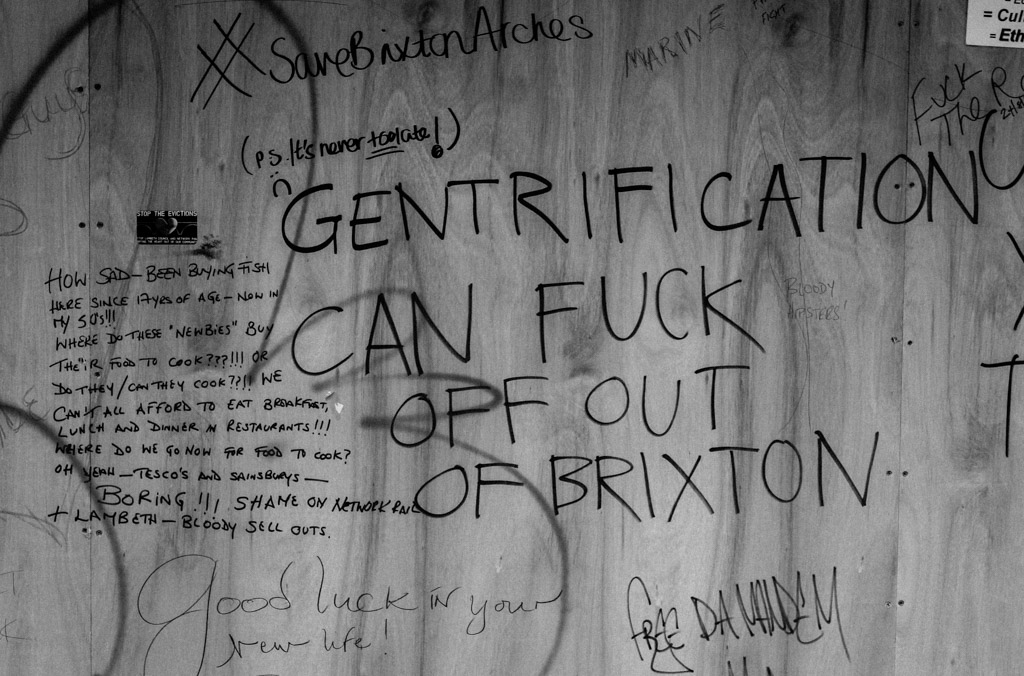 #SaveBrixtonArches
MARINE
FIGHT
= Cul
= Eth
FUCK
THE
(P.S. It's never too late!)
GENTRIFICATION
CAN FUCK
OFF OUT
OF BRIXTON
STOP THE EVICTIONS
HOW SAD – BEEN BUYING FISH
HERE SINCE 17YRS OF AGE – NOW IN
MY 50's!!!
WHERE DO THESE "NEWBIES" BUY
THE"iR FOOD TO COOK???!!! OR
DO THEY/CAN THEY COOK??!! WE
CAN'T ALL AFFORD TO EAT BREAKFAST,
LUNCH AND DINNER IN RESTAURANTS!!!
WHERE DO WE GO NOW FOR FOOD TO COOK?
OH YEAH – TESCO'S AND SAINSBURYS –
BORING!!!, SHAME ON NETWORK RAIL
+ LAMBETH – BLOODY SELL OUTS.
BLOODY
HIPSTERS!
Good luck in your
new life!
FREE DA MANDEM